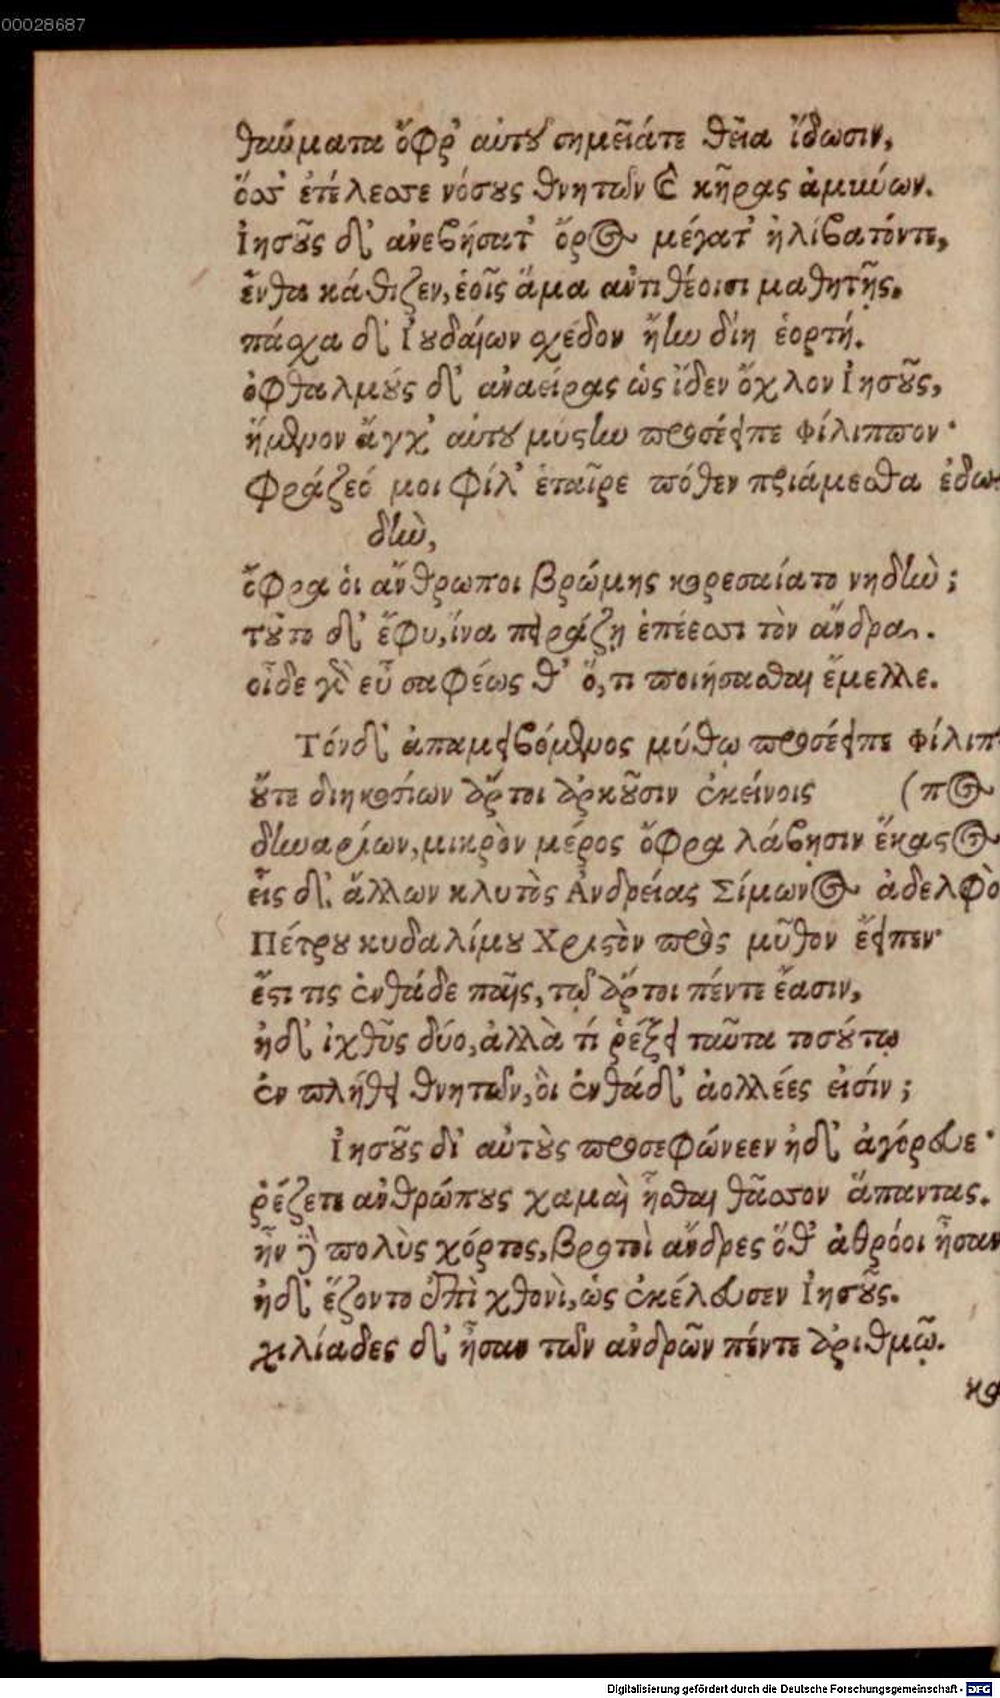 00028687
θαύματα ὄφρ' αὐτοῦ σημεῖάτε θεῖα ἴδωσιν,
ὅσς' ἐτέλεσσε νόσους θνητῶν καὶ κῆρας ἀμύων.
Ἰησοῦς δ' ἀνεβήσατ' ὄρος μέγατ' ἠλίβατόντε,
ἔνθα κάθιζεν, ἑοῖς ἅμα ἀντιθέοισι μαθητῇς.
πάσχα δ' Ἰουδαίων σχέδον ἤην δίη ἑορτή.
ὀφθαλμούς δ' ἀναείρας ὡς ἴδεν ὄχλον Ἰησοῦς,
ἥμενον ἄγχ' αὐτοῦ μύστην προσέειπε Φίλιππον·
Φράζεό μοι φίλ' ἑταῖρε πόθεν πριάμεσθα ἐδω-
δὴν,
ὄφρα οἱ ἄνθρωποι βρώμης κορεσαίατο νηδὺν;
τοῦτο δ' ἔφυ, ἵνα πειράζῃ ἐπέεσσι τὸν ἄνδρα.
οἶδε γὰρ εὖ σαφέως θ' ὅ, τι ποιήσασθαι ἔμελλε.
Τόνδ' ἀπαμειβόμενος μύθῳ προσέειπε Φίλιπ-
οὔτε διηκοσίων ἄρτοι ἀρκοῦσιν ἐκείνοις (πος
δηναρίων, μικρὸν μέρος ὄφρα λάβησιν ἕκαστος
εἷς δ' ἄλλων κλυτὸς Ἀνδρείας Σίμωνος ἀδελφὸ
Πέτρου κυδαλίμου Χριστὸν πρὸς μῦθον ἔειπεν·
ἔστι τις ἐνθάδε παῖς, τῷ ἄρτοι πέντε ἔασιν,
ἠδ' ἰχθῦς δύο, ἀλλὰ τί ῥέξει ταῦτα τοσούτῳ
ἐν πλήθει θνητῶν, οἳ ἐνθάδ' ἀολλέες εἰσίν;
Ἰησοῦς δ' αὐτοὺς προσεφώνεεν ἠδ' ἀγόρευε·
ῥέζετε ἀνθρώπους χαμαὶ ἧσθαι θᾶσσον ἅπαντας.
ἦν γὰρ πολὺς χόρτος, βροτοὶ ἄνδρες ὅθ' ἀθρόοι ἦσαν
ἠδ' ἕζοντο ἐπὶ χθονὶ, ὡς ἐκέλευσεν Ἰησοῦς.
χιλίαδες δ' ἦσαν τῶν ἀνδρῶν πέντε ἀριθμῷ.
κο
Digitalisierung gefördert durch die Deutsche Forschungsgemeinschaft - DFG